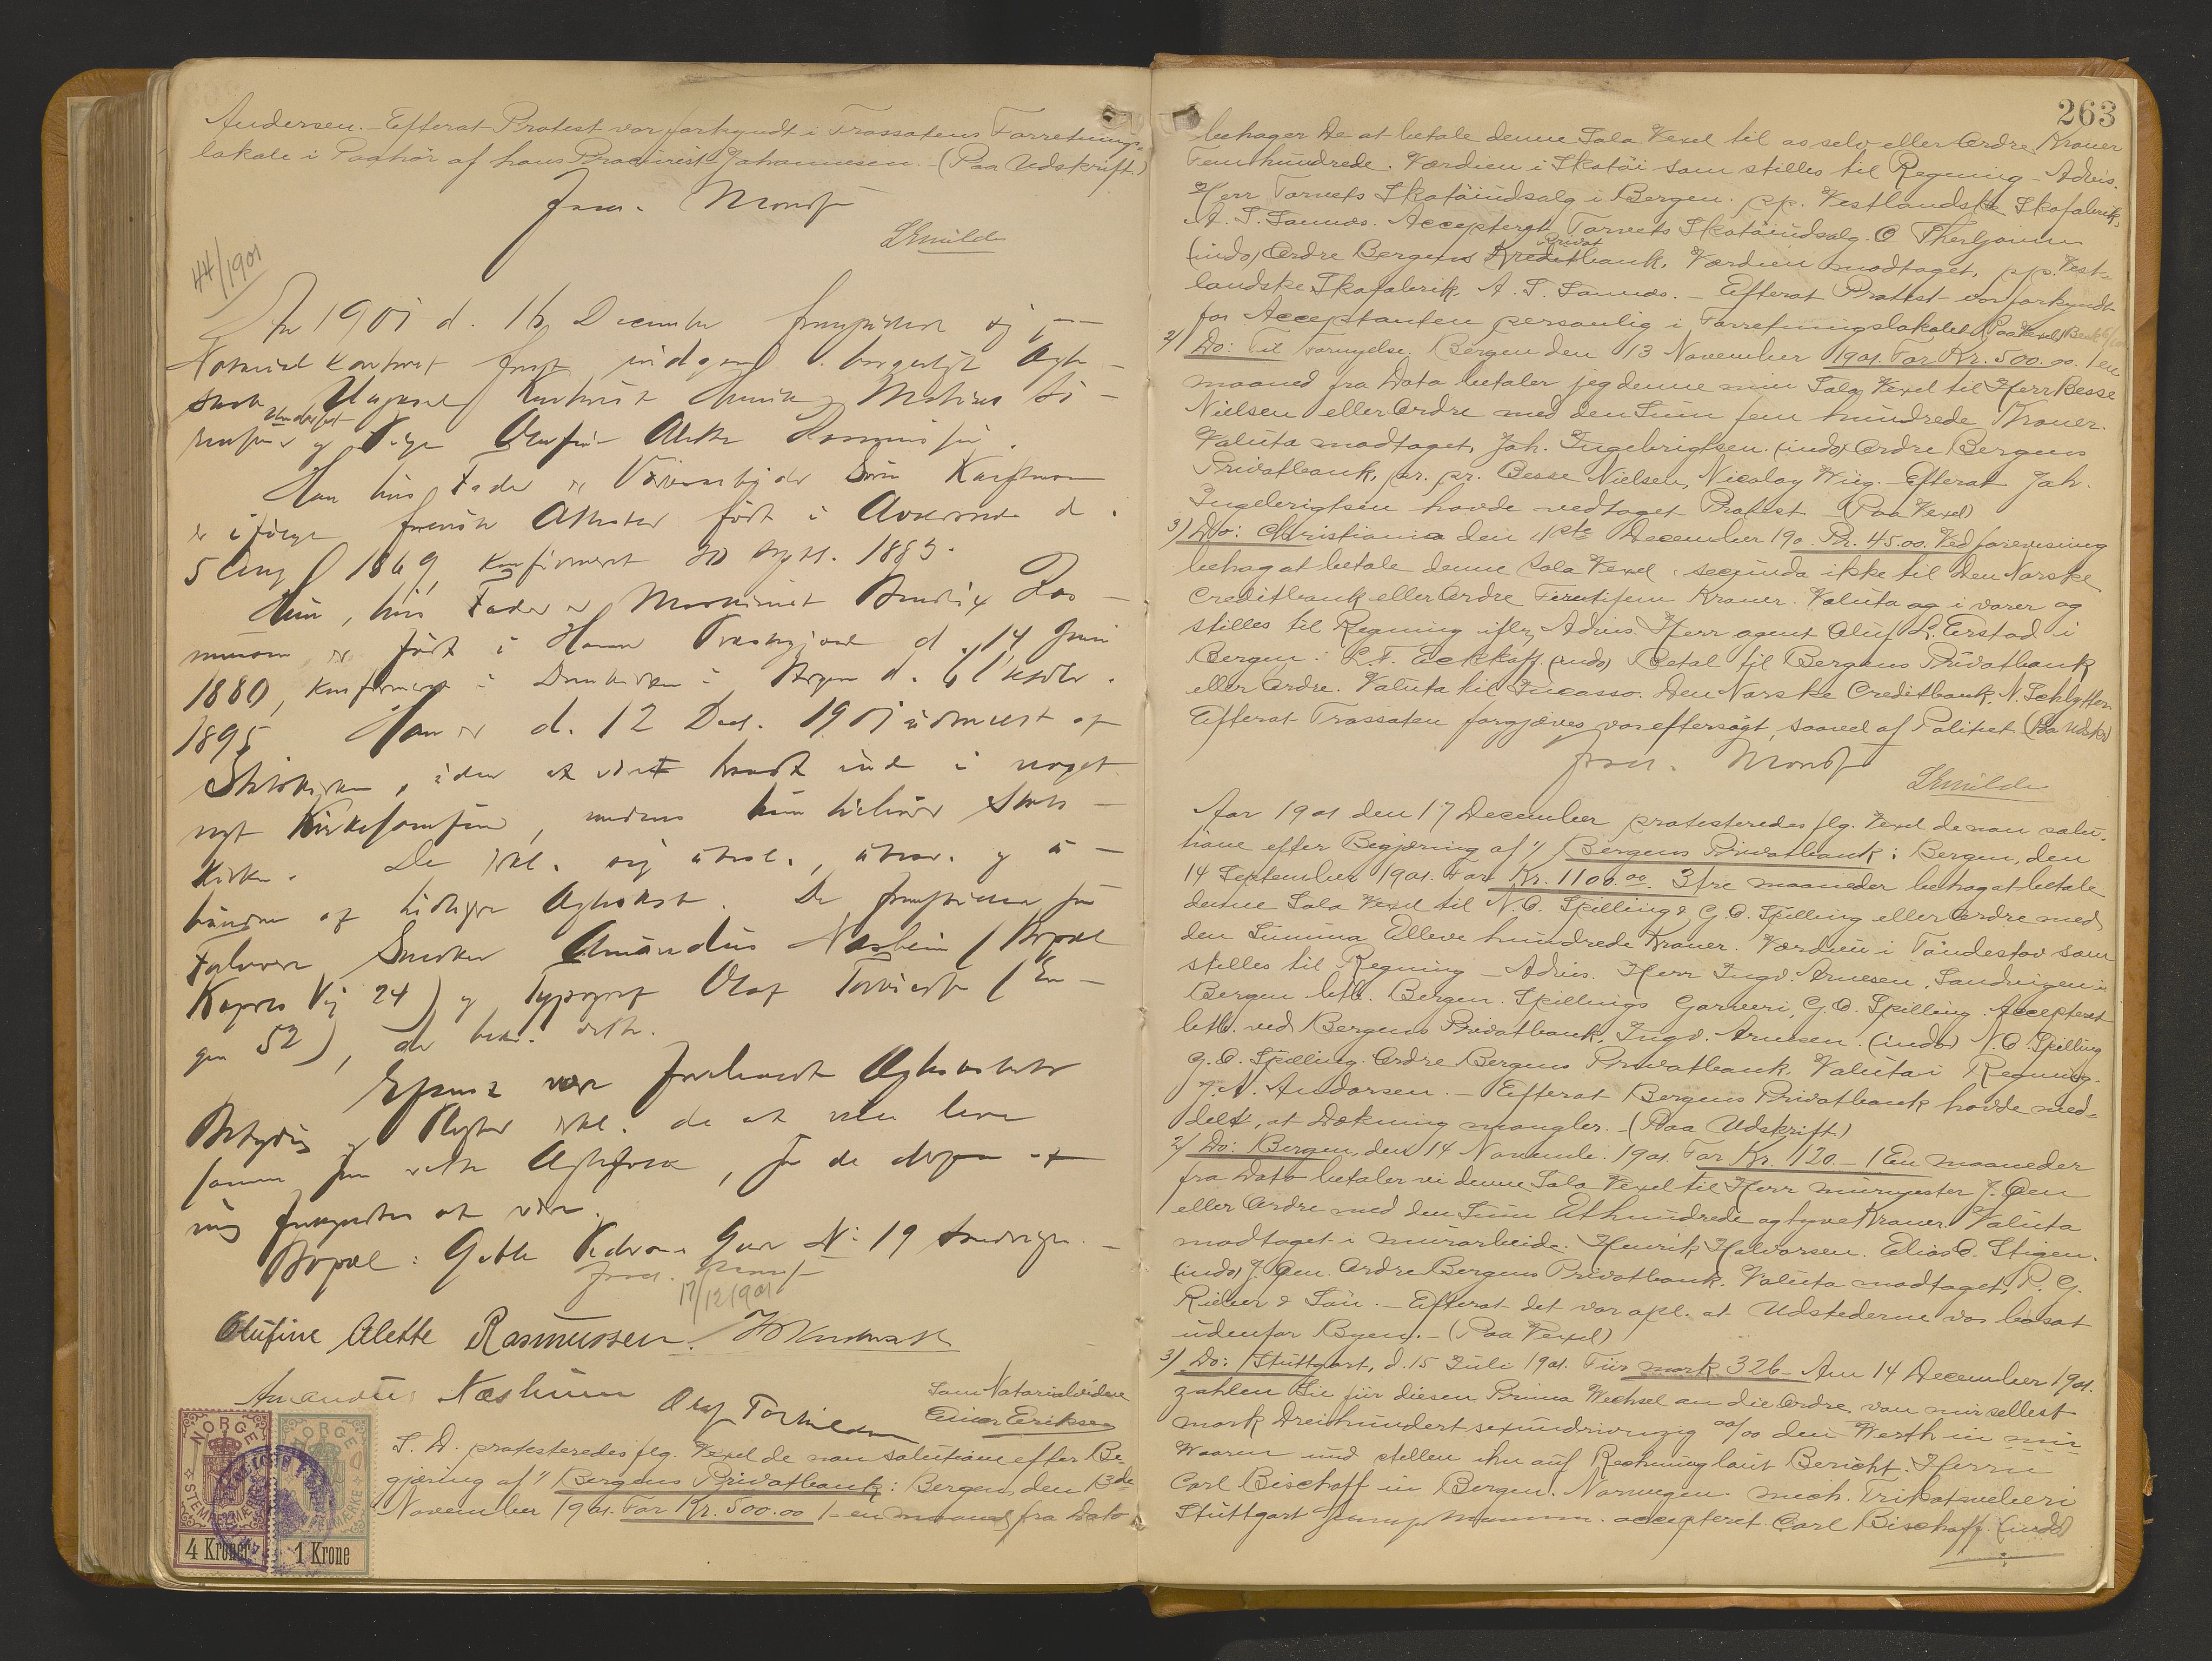 Andersen. – Efterat Protest var forkyndt i Trassatens Forretnings-
lokale i Paahør af hans Procurist Johannesen. – (Paa Udskrift.)
44/1901
Aar 1901 d. 16 December fremstillede sig i
Notarialkontoret for at indgaa borgerligt Ægte-
skab Ungkarl
og Pige Olufine Alette Rasmussen.
Han, hvis Fader er
er ifølge fremviste Attester født i d.
5 Aug 1869, konfirmeret 20 Septb. 1885.
Hun, hvis Fader er Maskinist Ras-
mussen er født i Præstegjæld d. 14 Juni
1880, konfirmeret i Domkirken i Bergen d. 6 Oktbr.
1895. Han er d. 12 Decb. 1901 udmeldt af
Statskirken, uden at være traadt ind i noget
nyt Kirkesamfund, medens hun tilhører Stats-
kirken. De erkl. sig
bundne af tidligere Ægteskab. De fremstillede som
Forlovere Snedker Amandus Næsheim (Bopæl
Vej 24) og Typograf Olaf (En-
gen 52), der
foreholdt Ægteskabets
Betydning og Pligter erkl. de at ville leve
sammen som rette Ægtefolk, som de derpaa af
mig forkyndtes at være.
Bopæl: Gade No 19 Sandvigen. –
17/12 1901
Olufine Alette Rasmussen.
Amandus Næsheim Olaf
Som Notarialvidne
Einar Eriksen
NORGE NORGE
STEMPELMÆRKE STEMPELMÆRKE
4 Kroner 1 Krone
S. D. protesteredes flg. Vexel de non solutione efter Be-
gjæring af 1/ Bergens Privatbank: Bergen, den 13de
November 1901. For Kr. 500.00 1– en maaned fra Dato
263
behager De at betale denne Sola Vexel til os selv eller Ordre Kroner
Femhundrede. Værdien i Skotøi som stilles til Regning – Advis.
Herr Torvets Skotøiudsalg i Bergen. pp. Vestlandske Skofabrik,
A. T. Sannes. Accepteret Torvets Skotøiudsalg. O
Privat
(indo) Ordre Bergens Kreditbank. Værdien modtaget. pp. Vest-
landske Skofabrik. A. T. Sannes. – Efterat Protest var forkyndt
for Acceptanten personlig i Forretningslokalet (Paa Vexel)
2/ Do: Til Fornyelse. Bergen den 13 November 1901. For Kr. 500.00. 1 en
maaned fra Dato betaler jeg denne min Sola Vexel til Herr Besse
Nielsen eller Ordre med den Sum fem hundrede Kroner.
Valuta modtaget, Joh. Ingebrigtsen. (indo) Ordre Bergens
Privatbank, pr. pr. Besse Nielsen, Nicolay Wiig. – Efterat Joh.
Ingebrigtsen havde vedtaget Protest – (Paa Vexel)
3/ Do: Christiania den 4de December 190. Kr. 45.00. Ved forevisning
behag at betale denne Sola Vexel, secunda ikke til Den Norske
Creditbank eller Ordre Firetifem Kroner. Valuta og i varer og
stilles til Regning iflg. Advis. Herr agent Oluf L. Erstad i
Bergen. L. F. (indo) Betal til Bergens Privatbank
eller Ordre. Valuta til Incasso. Den Norske Creditbank, N. Schlytter.
Efterat Trassaten forgjæves var eftersøgt, saavel af Politiet (Paa Udskr)
Aar 1901 den 17 December protesteredes flg. Vexel de non solu-
tione efter Begjæring af 1/ Bergens Privatbank: Bergen, den
14 September 1901. For Kr. 1100.00. 3 tre maaneder behag at betale
denne Sola Vexel til N. O. Spilling & G. O. Spilling eller Ordre med
den Summa Elleve hundrede Kroner. Værdien i Tøndestav som
stilles til Regning – Advis. Herr Ingv. Arnesen, Sandvigen i
Bergen betb. Bergen. Spillings Garveri, G. O. Spilling. Accepteret
betb. ved Bergens Privatbank. Ingv. Arnesen. (indo) N. O. Spilling
G. O. Spilling. Ordre Bergens Privatbank. Valuta i Regning.
J. N. Andorsen. – Efterat Bergens Privatbank havde med-
delt, at Dækning mangler. – (Paa Udskrift)
2/ Do: Bergen, den 14 Novembr. 1901. For Kr. 120 – 1 En maaneder
fra Dato betaler vi denne Sola Vexel til Herr murmester J. Øen
eller Ordre med den Sum Ethundrede og tyve Kroner. Valuta
modtaget i murarbeide. Henrik Halvorsen. Elias O. Stigen.
(indo) J. Øen. Ordre Bergens Privatbank. Valuta modtaget, P. G.
Rieber & Søn. – Efterat det var opl. at Udstederne var bosat
udenfor Byen. – (Paa Vexel)
3/ Do: Stuttgart, d. 15 Juli 1901. Für mark 326 – Am 14 December 1901.
zahlen Sie für diesen Prima Wechsel an die Ordre von mir selbst
mark Dreihundert sexundzwanzig 00/00 den Werth in mir
Waaren und stellen ihn auf Rechnung laut Bericht. Herrn
Carl Bischoff in Bergen. Norwegen. mech. Trikotweberei
Stuttgart accepteret Carl Bischoff. (indo)